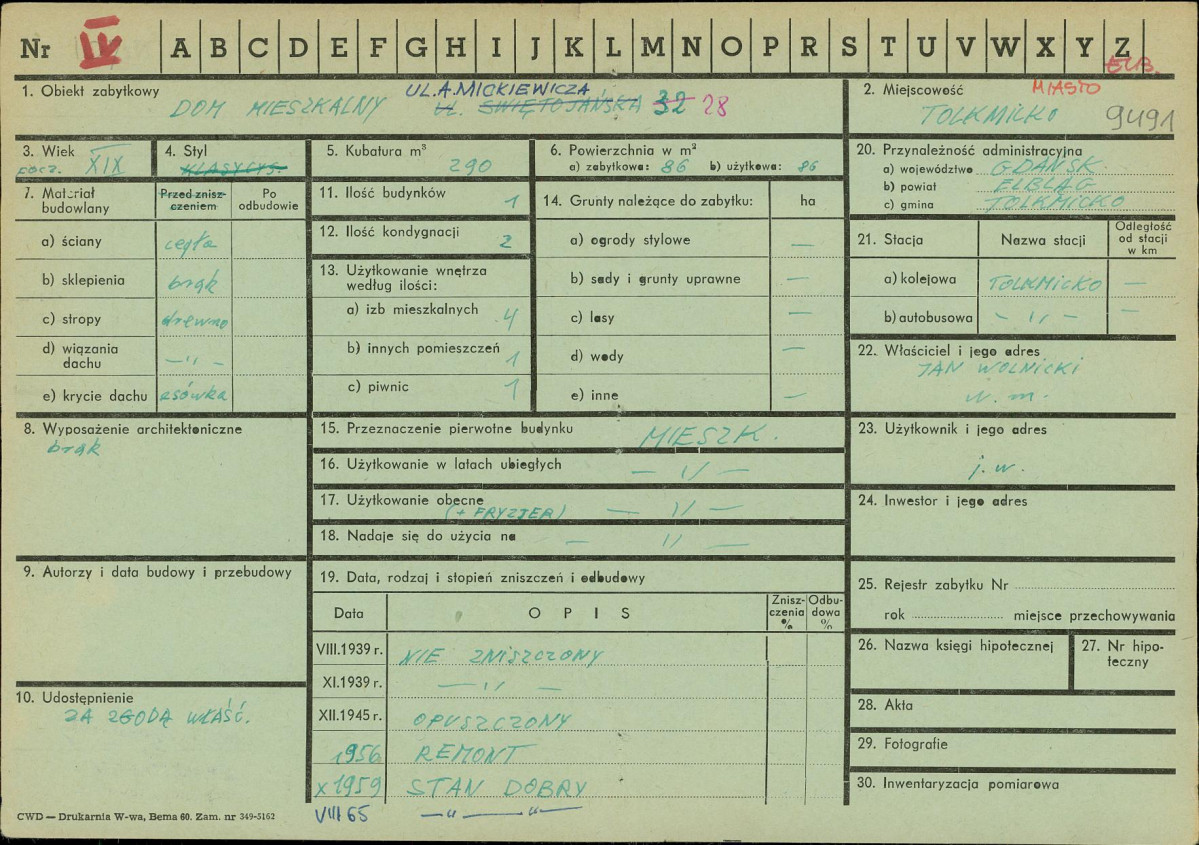 Nr IV A B C D E F G H I J K L M N O P R S T U V W X Y Z
ELB.
1. Obiekt zabytkowy
DOM MIESZKALNY UL. A. MICKIEWICZA
UL. ŚWIĘTOJAŃSKA 32 28
2. Miejscowość MIASTO
TOLKMICKO 9491
3. Wiek
pocz. XIX
4. Styl
KLASYCYS.
5. Kubatura m³
290
6. Powierzchnia w m²
a) zabytkowa: 86 b) użytkowa: 86
20. Przynależność administracyjna
a) województwo GDAŃSK
b) powiat ELBLĄG
c) gmina TOLKMICKO
7. Materiał budowlany
Przed zniszczeniem
Po odbudowie
a) ściany cegła
b) sklepienia brak
c) stropy drewno
d) wiązania dachu —„—
e) krycie dachu esówka
11. Ilość budynków 1
12. Ilość kondygnacji 2
13. Użytkowanie wnętrza według ilości:
a) izb mieszkalnych 4
b) innych pomieszczeń 1
c) piwnic 1
14. Grunty należące do zabytku: ha
a) ogrody stylowe —
b) sady i grunty uprawne —
c) lasy —
d) wody —
e) inne —
21. Stacja Nazwa stacji Odległość od stacji w km
a) kolejowa TOLKMICKO —
b) autobusowa —„— —
22. Właściciel i jego adres
JAN WOLNICKI
w. m.
8. Wyposażenie architektoniczne
brak
15. Przeznaczenie pierwotne budynku MIESZK.
16. Użytkowanie w latach ubiegłych —„—
17. Użytkowanie obecne
(+ FRYZJER) —„—
18. Nadaje się do użycia na —„—
23. Użytkownik i jego adres
j. w.
24. Inwestor i jego adres
9. Autorzy i data budowy i przebudowy
19. Data, rodzaj i stopień zniszczeń i odbudowy
Data OPIS Zniszczenia % Odbudowa %
VIII.1939 r. NIE ZNISZCZONY
XI.1939 r. —„—
XII.1945 r. OPUSZCZONY
1956 REMONT
X 1959 STAN DOBRY
VIII 65 —„——„—
25. Rejestr zabytku Nr
rok miejsce przechowywania
26. Nazwa księgi hipotecznej
27. Nr hipoteczny
10. Udostępnienie
ZA ZGODĄ WŁAŚĆ.
28. Akta
29. Fotografie
30. Inwentaryzacja pomiarowa
CWD — Drukarnia W-wa, Bema 60. Zam. nr 349-5162